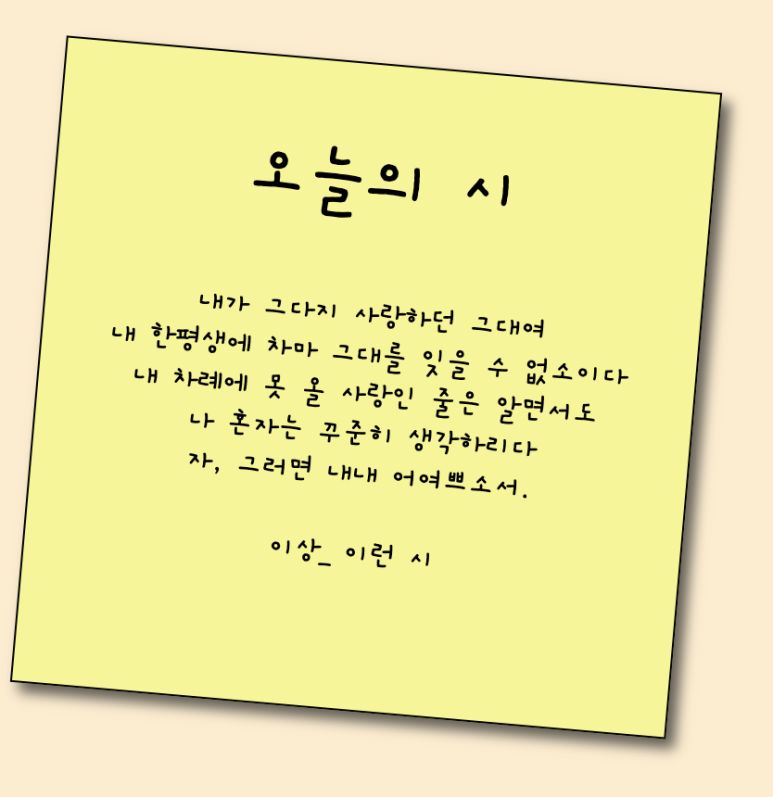 오늘의 시
내가 그다지 사랑하던 그대여
내 한평생에 차마 그대를 잊을 수 없소이다
내 차례에 못 올 사랑인 줄은 알면서도
나 혼자는 꾸준히 생각하리다
자, 그러면 내내 어여쁘소서.
이상_ 이런 시